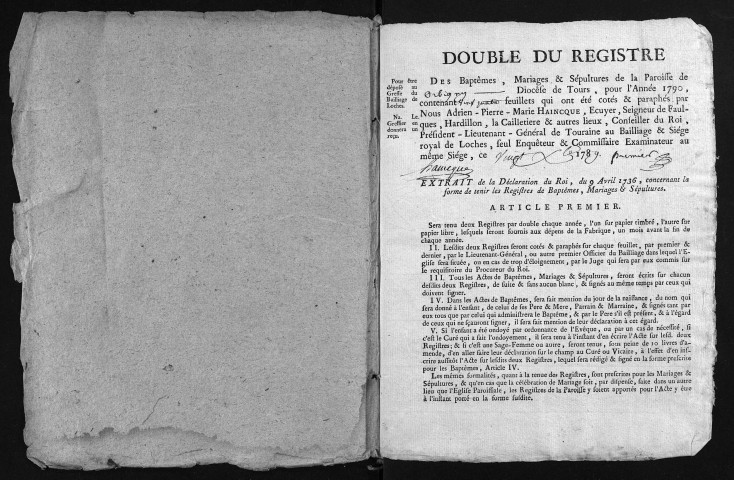 DOUBLE DU REGISTRE
Pour être
déposé au
Greffe du
Bailliage de
Loches.
Na. Le
Greffier en
donnera un
reçu.
DES Baptêmes, Mariages & Sépultures de la Paroisse de
Orbigny Diocèse de Tours, pour l'Année 1790,
contenant feuillets qui ont été cotés & paraphés par
Nous Adrien-Pierre-Marie HAINCQUE, Ecuyer, Seigneur de Faul-
ques, Hardillon, la Cailletiere & autres lieux, Conseiller du Roi,
Président-Lieutenant-Général de Touraine au Bailliage & Siége
royal de Loches, seul Enquêteur & Commissaire Examinateur au
même Siége, ce vingt Xbre 1789. premier
haincque
EXTRAIT de la Déclaration du Roi, du 9 Avril 1736, concernant la
forme de tenir les Registres de Baptêmes, Mariages & Sépultures.
ARTICLE PREMIER.
Sera tenu deux Registres par double chaque année, l'un sur papier timbré, l'autre sur
papier libre, lesquels seront fournis aux dépens de la Fabrique, un mois avant la fin de
chaque année.
II. Lesdits deux Registres seront cotés & paraphés sur chaque feuillet, par premier &
dernier, par le Lieutenant-Général, ou autre premier Officier du Bailliage dans lequel l'E-
glise sera située, ou en cas de trop d'éloignement, par le Juge qui sera par eux commis sur
le requisitoire du Procureur du Roi.
III. Tous les Actes de Baptêmes, Mariages & Sépultures, seront écrits sur chacun
desdits deux Registres, de suite & sans aucun blanc, & signés au même temps par ceux qui
doivent signer.
IV. Dans les Actes de Baptêmes, sera fait mention du jour de la naissance, du nom qui
sera donné à l'enfant, de celui de ses Pere & Mere, Parrain & Marraine, & signés tant par
eux tous que par celui qui administrera le Baptême, & par le Pere s'il est présent, & à l'égard
de ceux qui ne sçauront signer, il sera fait mention de leur déclaration à cet égard.
V. Si l'enfant a été ondoyé par ordonnance de l'Evêque, ou par un cas de nécessité, si
c'est le Curé qui a fait l'ondoyement, il sera tenu à l'instant d'en écrire l'Acte sur lesd. deux
Registres; & si c'est une Sage-Femme ou autre, seront tenus, sous peine de 10 livres d'a-
mende, d'en aller faire leur déclaration sur le champ au Curé ou Vicaire, à l'effet d'en ins-
crire aussitôt l'Acte sur lesdits deux Registres, lequel sera rédigé & signé en la forme prescrite
pour les Baptêmes, Article IV.
Les mêmes formalités, quant à la tenue des Registres, sont prescrites pour les Mariages &
Sépultures, & qu'en cas que la célébration de Mariage soit, par dispense, faite dans un autre
lieu que l'Eglise Paroissiale, les Registres de la Paroisse y soient apportés pour l'Acte y être
à l'instant porté en la forme susdite.